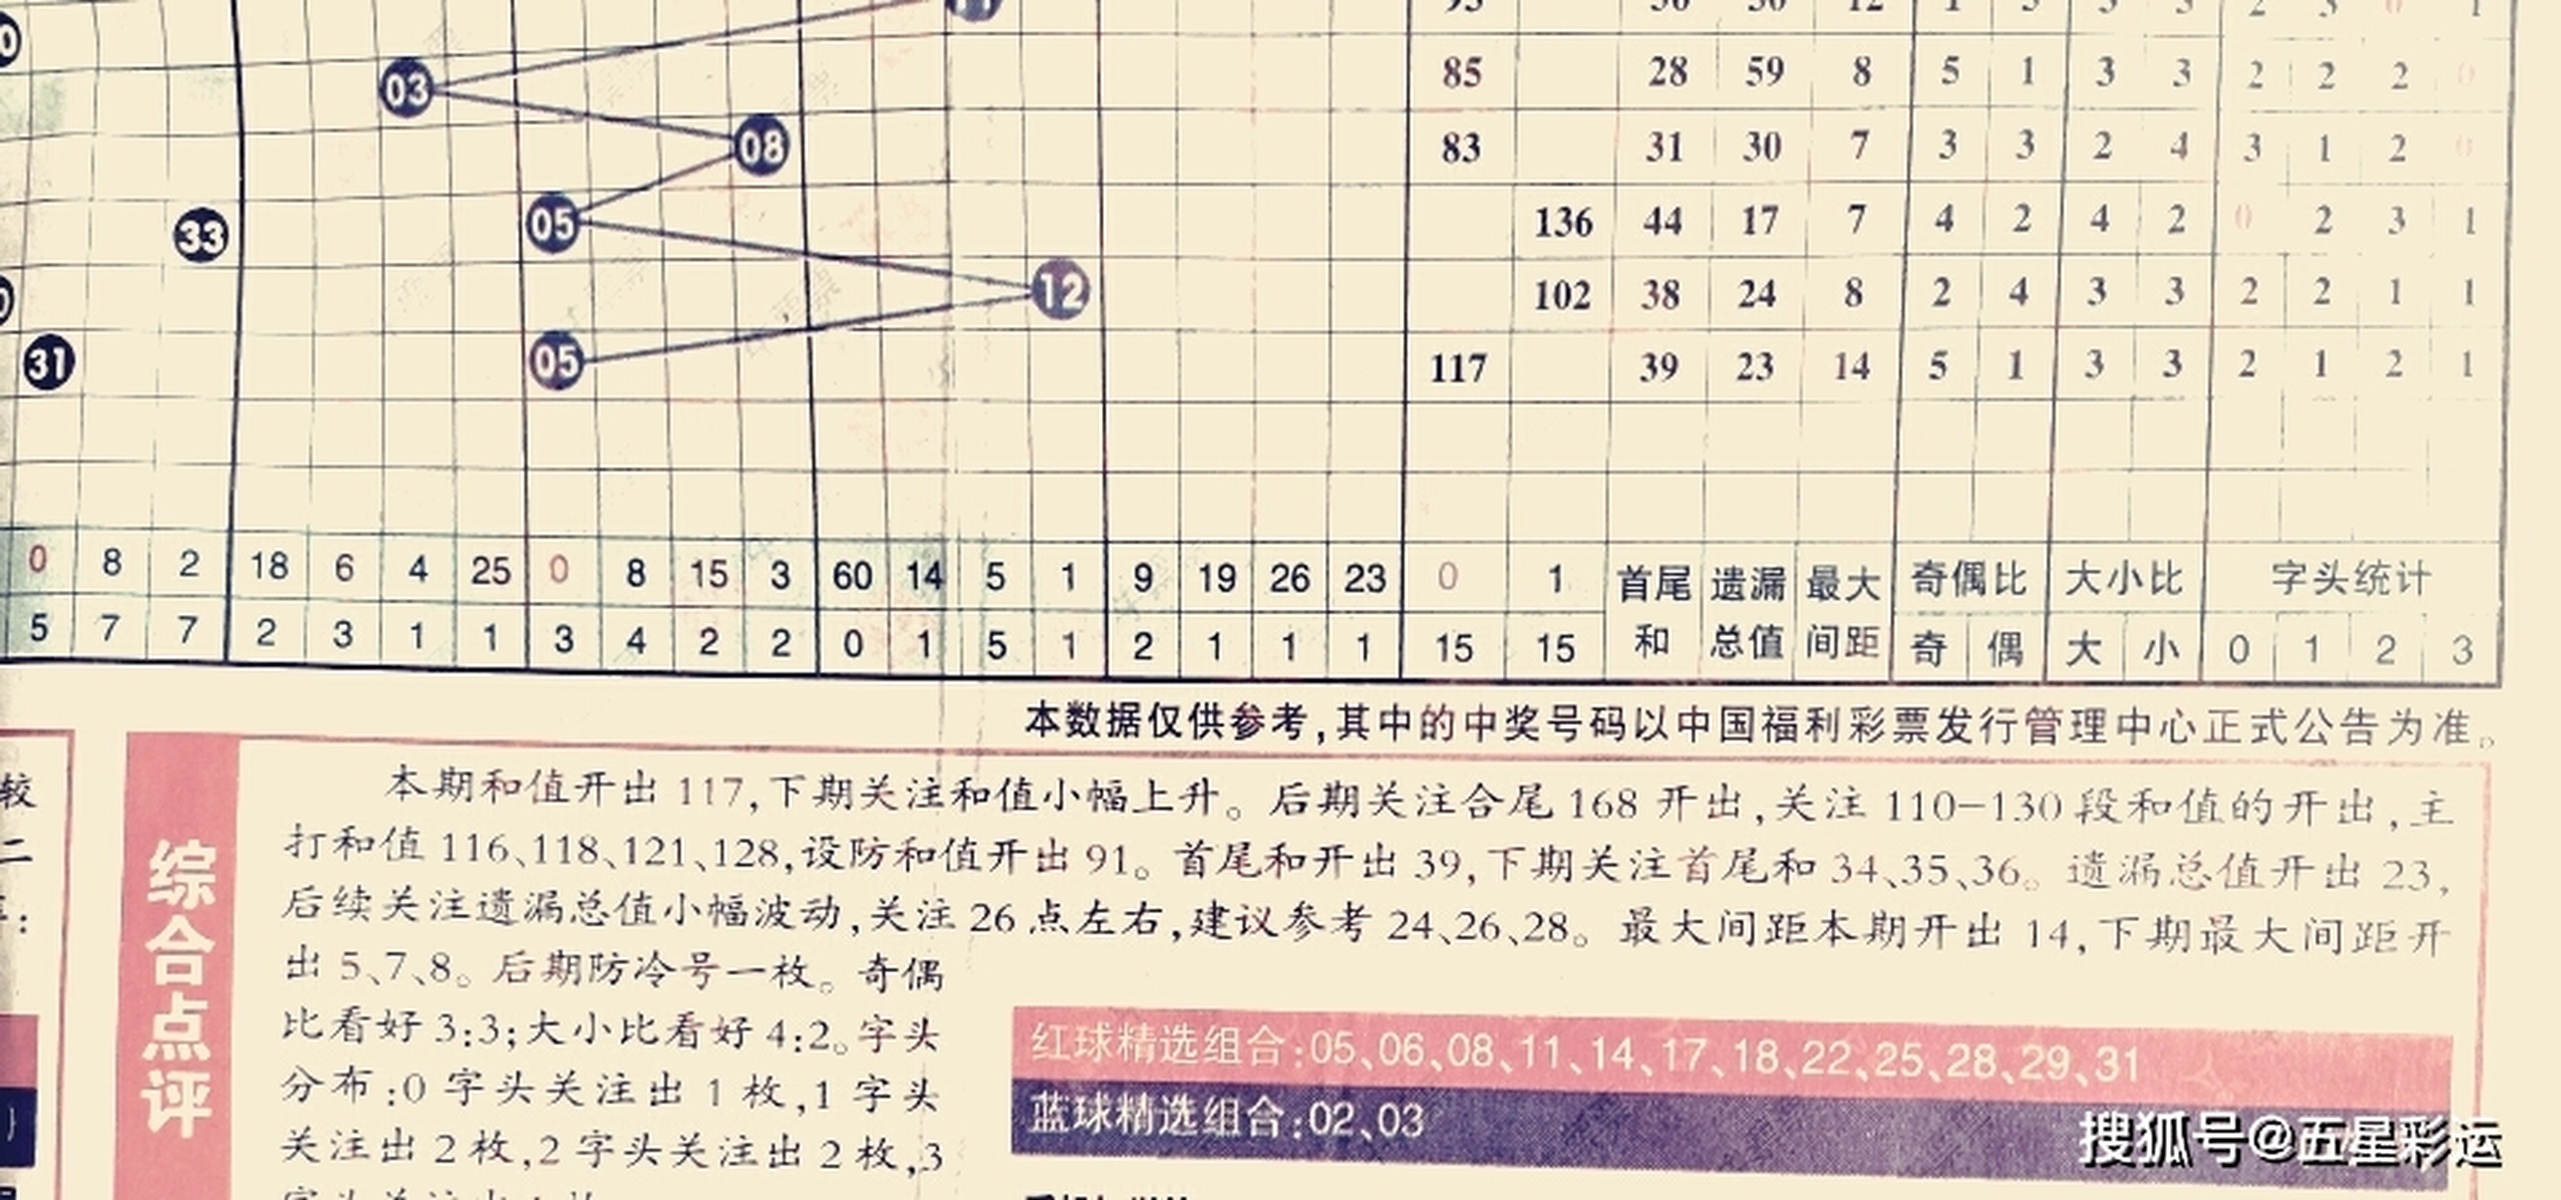 03 85 28 59 8 5 1 3 3 2 2 2 0
08 83 31 30 7 3 3 2 4 3 1 2 0
33 05 136 44 17 7 4 2 4 2 0 2 3 1
12 102 38 24 8 2 4 3 3 2 2 1 1
31 05 117 39 23 14 5 1 3 3 2 1 2 1
0 8 2 18 6 4 25 0 8 15 3 60 14 5 1 9 19 26 23 0 1 首尾 遗漏 最大 奇偶比 大小比 字头统计
5 7 7 2 3 1 1 3 4 2 2 0 1 5 1 2 1 1 1 15 15 和 总值 间距 奇 偶 大 小 0 1 2 3
本数据仅供参考,其中的中奖号码以中国福利彩票发行管理中心正式公告为准。
较
二
综合点评
本期和值开出 117,下期关注和值小幅上升。后期关注合尾 168 开出,关注 110-130 段和值的开出,主
打和值 116、118、121、128,设防和值开出 91。首尾和开出 39,下期关注首尾和 34、35、36。遗漏总值开出 23,
后续关注遗漏总值小幅波动,关注 26 点左右,建议参考 24、26、28。最大间距本期开出 14,下期最大间距开
出 5、7、8。后期防冷号一枚。奇偶
比看好 3:3;大小比看好 4:2。字头
分布:0 字头关注出 1 枚,1 字头
关注出 2 枚,2 字头关注出 2 枚,3
红球精选组合:05、06、08、11、14、17、18、22、25、28、29、31
蓝球精选组合:02、03
搜狐号@五星彩运